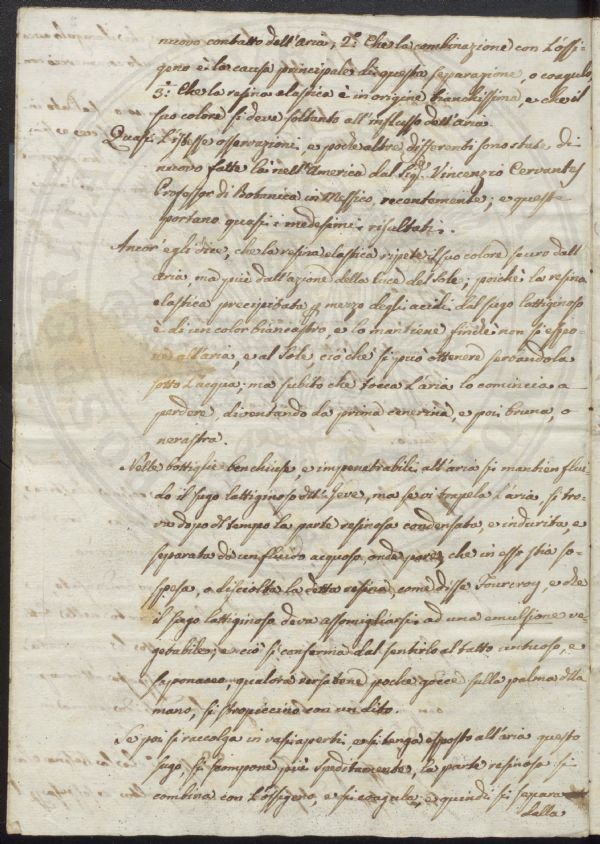 nuovo contatto dell'Aria; 2.° Che la combinazione con l'ossi-
geno è la causa principale di questa separazione, o coagulo,
3.° Che la resina elastica è in origine bianchissima, e che il
suo colore si deve soltanto all'influsso dell'aria.
Quasi l'istesse osservazioni, e poche altre differenti sono state, di
nuovo fatte là nell'America dal Sig.r Vincenzio Cervantes
Professore di Botanica in Messico, recentemente; e queste
portano quasi i medesimi risultati.
Ancor'egli dice, che la resina elastica ripete il suo colore scuro dall'
aria, ma più dall'azione della luce del Sole; poichè la resina
elastica precipitata p mezzo degli acidi dal sugo lattiginoso
è di un color biancastro, e lo mantiene finchè non si espo-
ne all'aria, e al Sole, ciò che si può ottenere serbandola
sotto l'acqua; ma subito che tocca l'aria lo comincia a
perdere, diventando da prima cenerina, e poi bruna, o
nerastra.
Nelle bottiglie ben chiuse, e impenetrabili all'aria si mantien flui-
do il sugo lattiginoso dell'Jeve, ma se vi trapela l'aria si tro-
va dopo di tempo la parte resinosa condensata, e indurita, e
separata da un fluido acquoso, onde pare, che in esso stia so-
spesa, o disciolta la detta resina, come disse Fourcroy, e che
il sugo lattiginoso deva assomigliarsi ad una emulsione ve-
getabile; e ciò si conferma dal sentirlo al tatto untuoso, e
saponaceo, qualora versatene poche gocce sulla palma della
mano, si stropiccino con un dito.
Se poi si raccolga in vasi aperti, e si tenga esposto all'aria questo
sugo, si scompone più speditamente, la parte resinosa si
combina con l'ossigeno, e si coagula, e quindi si separa
dalla